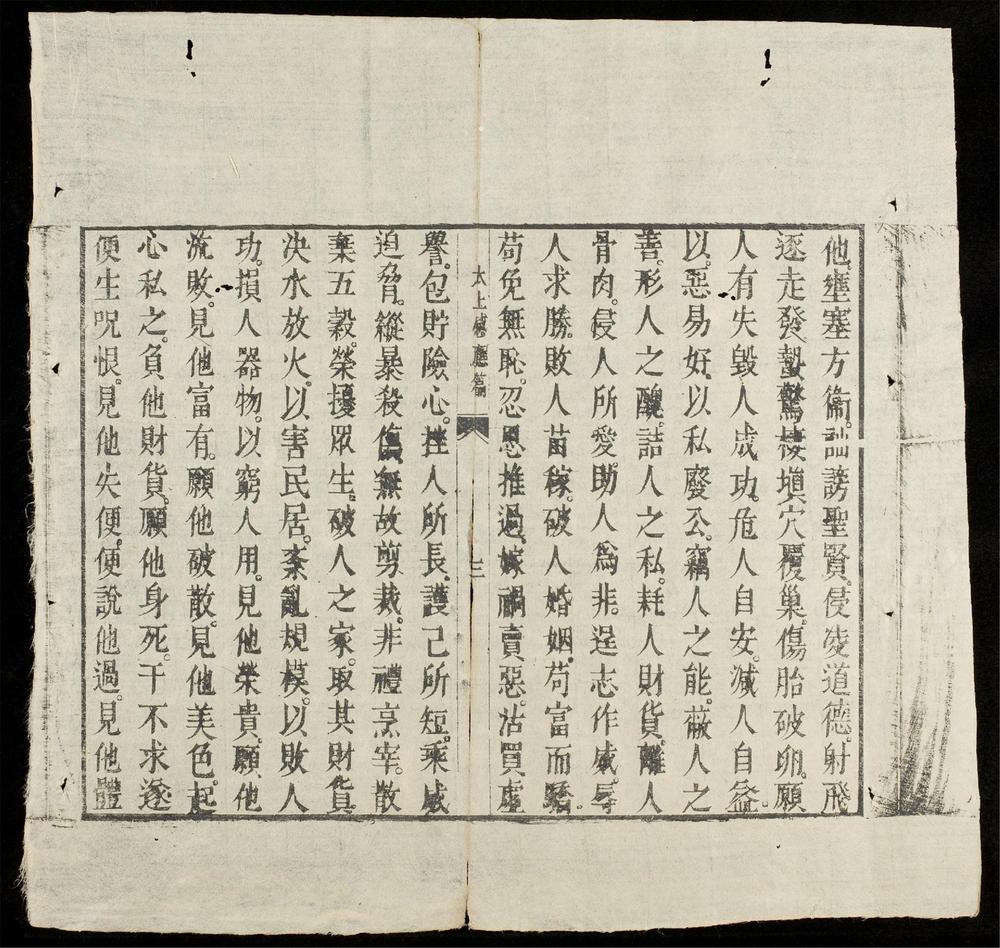 他。壅塞方術。訕謗聖賢。侵凌道德。射飛
逐走發蟄驚棲。塡穴覆巢。傷胎破卵。願
人有失毀人成功。危人自安。減人自益。
以惡易好。以私廢公。竊人之能。蔽人之
善。形人之醜。訐人之私。耗人財貨。離人
骨肉。侵人所愛。助人爲非。逞志作威。辱
人求勝。敗人苗稼。破人婚姻。苟富而驕。
苟免無恥。忍恩推過。嫁禍賣惡。沽買虛
太上感應篇 三
譽。包貯險心。挫人所長。護己所短。乘威
迫脅。縱暴殺傷。無故剪裁。非禮烹宰。散
棄五穀。勞擾眾生。破人之家。取其財貨。
決水放火。以害民居。紊亂規模。以敗人
功。損人器物。以窮人用。見他榮貴。願他
流敗。見他富有。願他破散。見他美色。起
心私之。負他財貨。願他身死。干求不遂
便生咒恨。見他失便。便說他過。見他體